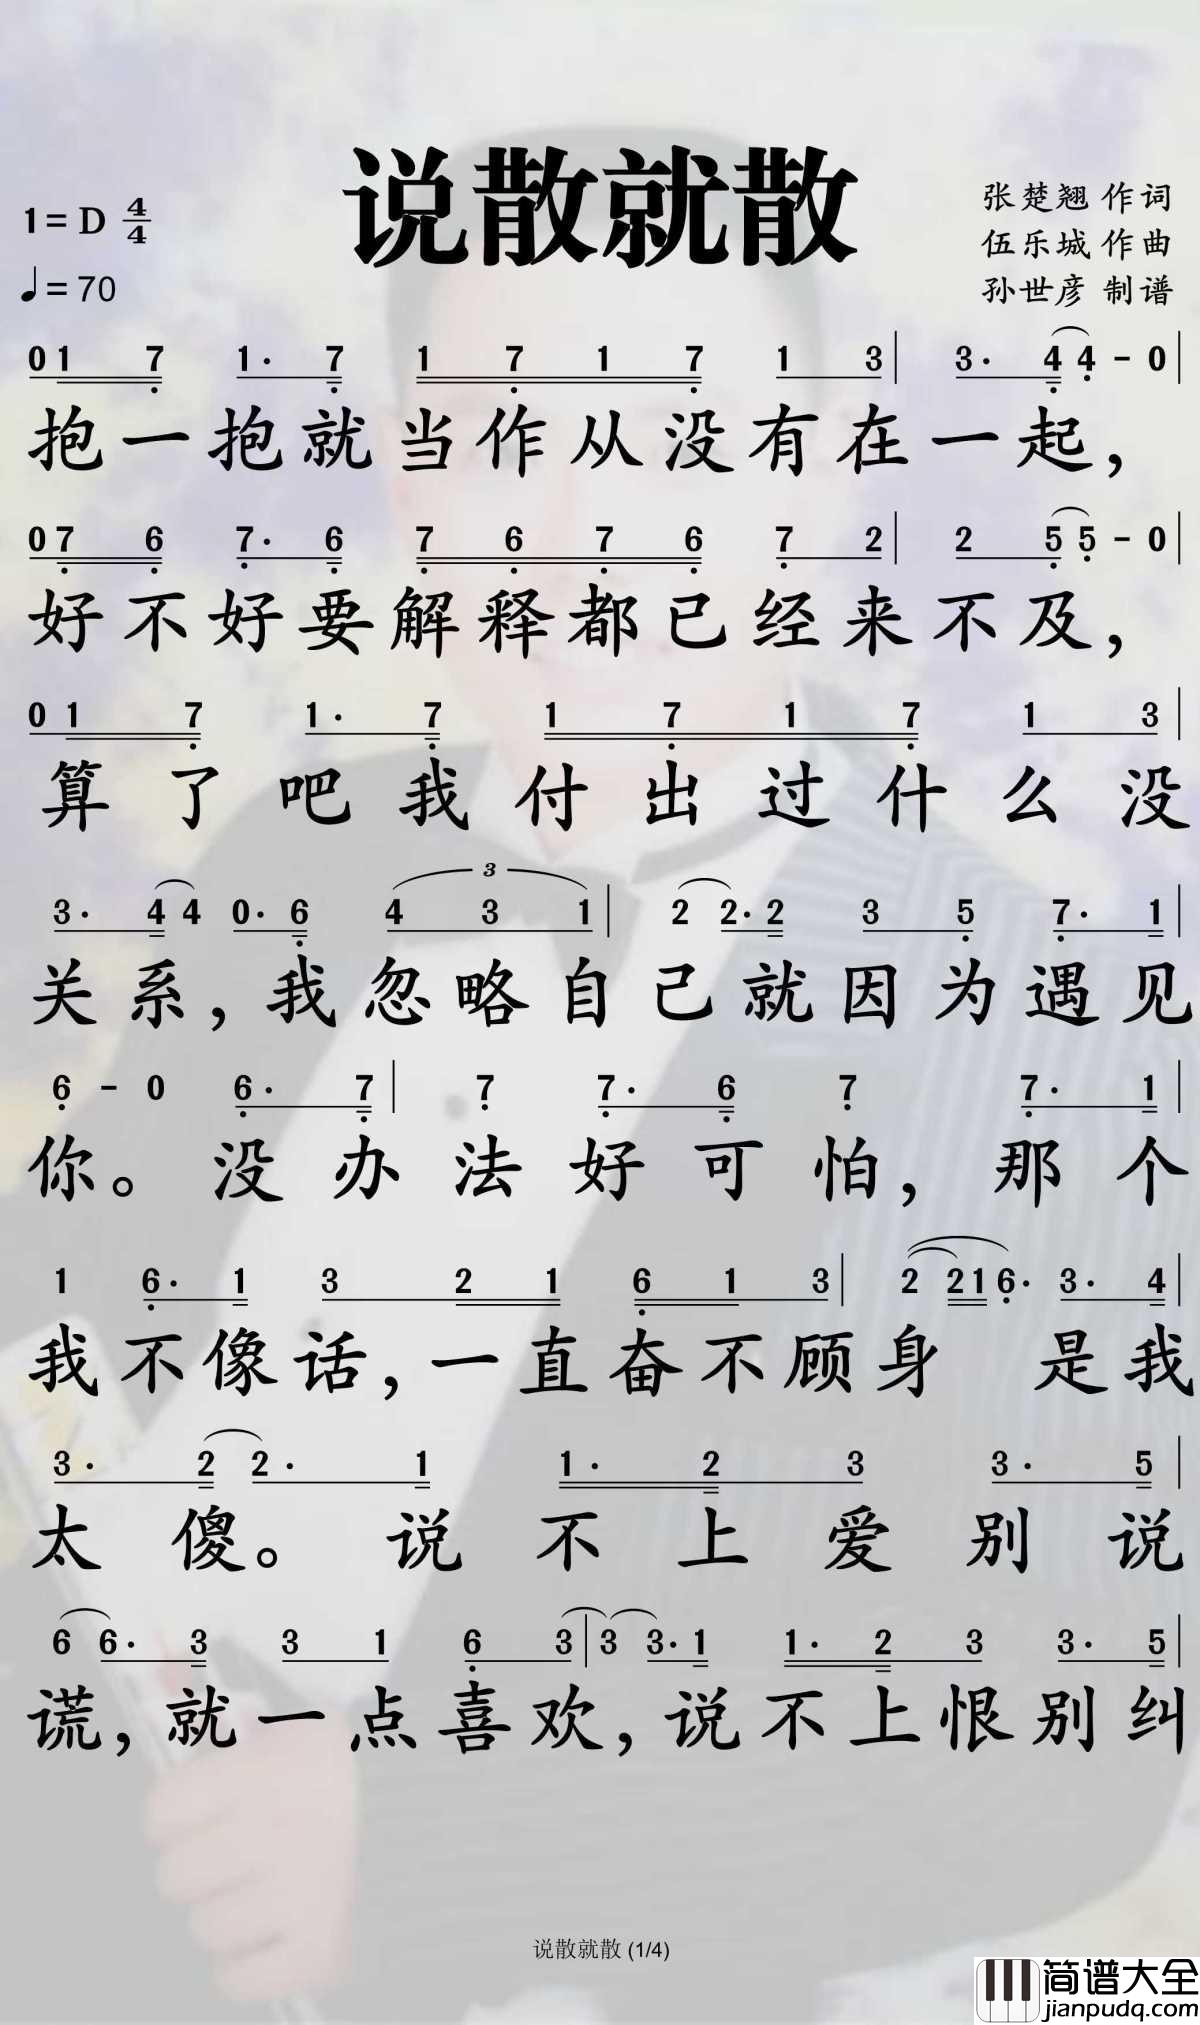 说散就散
1=D 4/4
♩=70
张楚翘 作词
伍乐城 作曲
孙世彦 制谱
0 1 7 1· 7 1 7 1 7 1 3 | 3· 4 4 - 0 |
抱一抱就当作从没有在一起,
0 7 6 7· 6 7 6 7 6 7 2 | 2 5 5 - 0 |
好不好要解释都已经来不及,
0 1 7 1· 7 1 7 1 7 1 3 |
算了吧我付出过什么没
3· 4 4 0· 6 3 4 3 1 | 2 2· 2 3 5 7· 1 |
关系,我忽略自己就因为遇见
6 - 0 6· 7 | 7 7· 6 7 7· 1 |
你。没办法好可怕,那个
1 6· 1 3 2 1 6 1 3 | 2 2 1 6· 3· 4 |
我不像话,一直奋不顾身 是我
3· 2 2· 1 1· 2 3 3· 5 |
太傻。说不上爱别说
6 6· 3 3 1 6 3 | 3 3· 1 1· 2 3 3· 5 |
谎,就一点喜欢,说不上恨别纠
说散就散 (1/4)
简谱大全
jianpudq.com